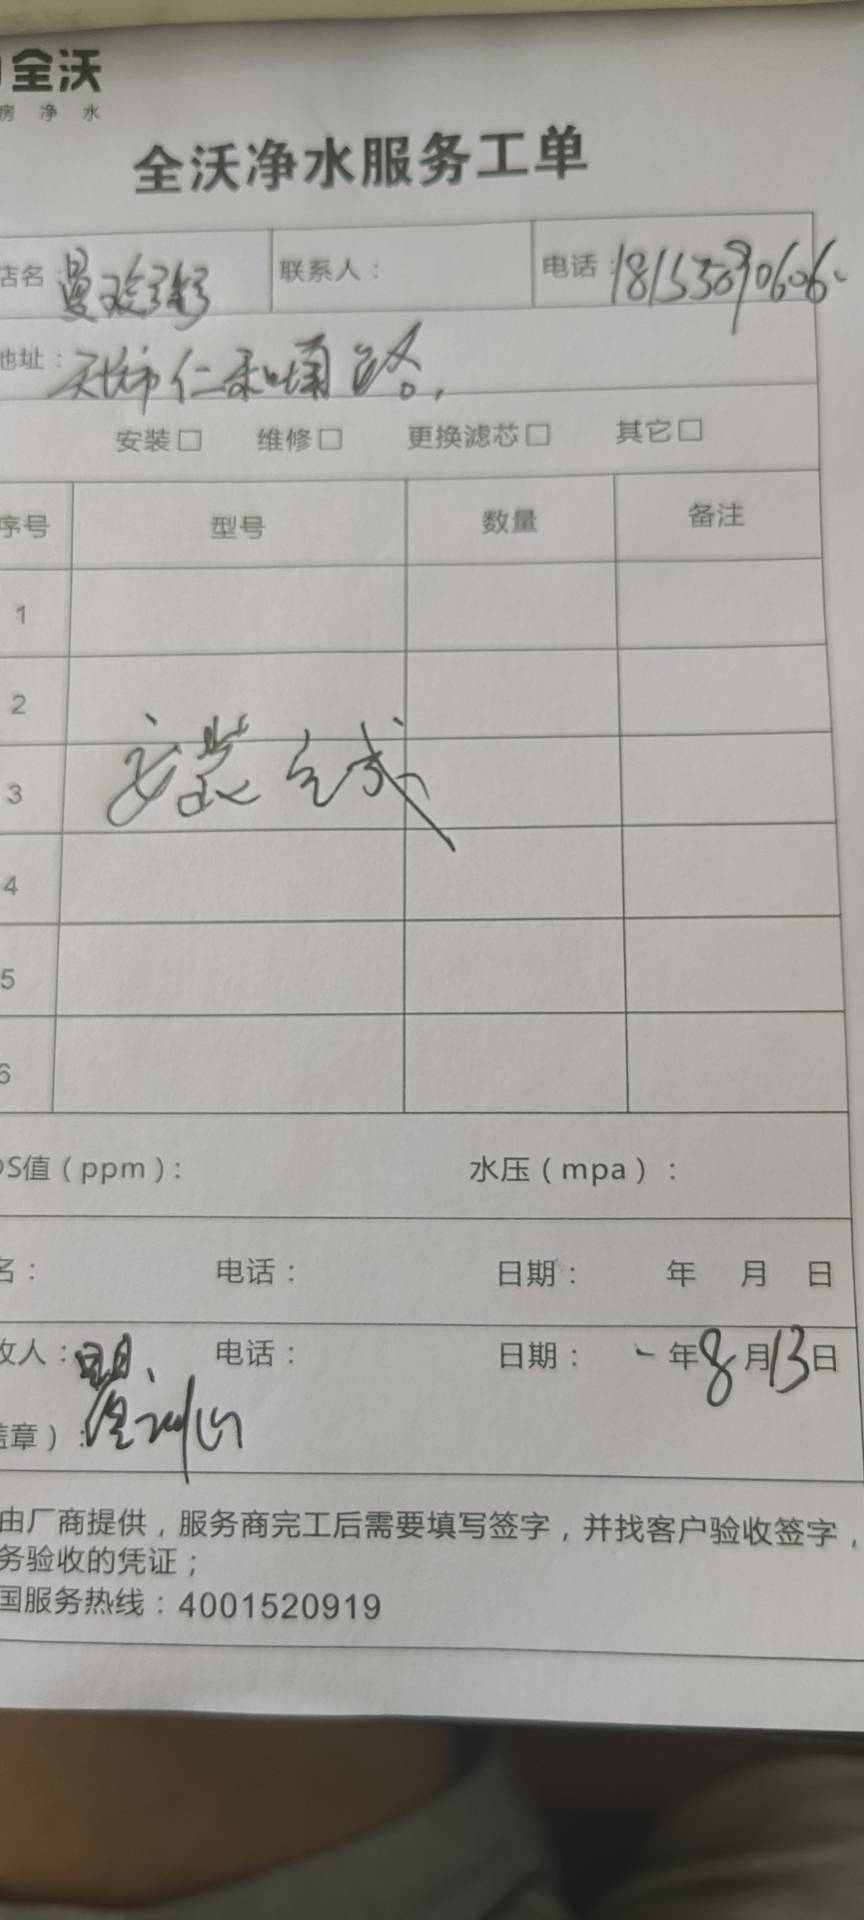 全沃
房 净 水
全沃净水服务工单
店名： 曼玲粥 联系人： 电话：18153890606
地址： 天长市仁和南路
安装□ 维修□ 更换滤芯□ 其它□
序号 型号 数量 备注
1
2
安装完成
3
4
5
6
DS值（ppm）： 水压（mpa）：
名： 电话： 日期： 年 月 日
收人： 电话： 日期： 年8月13日
盖章）：
由厂商提供，服务商完工后需要填写签字，并找客户验收签字，
务验收的凭证；
国服务热线：4001520919